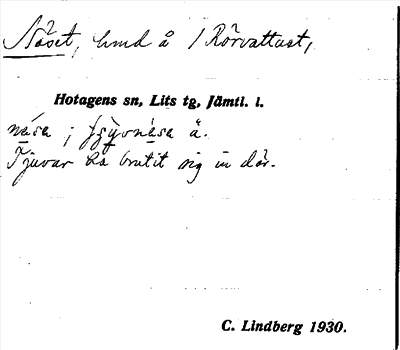 Näset, hmd å 1 Rörvattnet,
Hotagens sn, Lits tg, Jämtl. l.
nása ; å.
Tjuvar ha brutit sig in där.
C. Lindberg 1930.